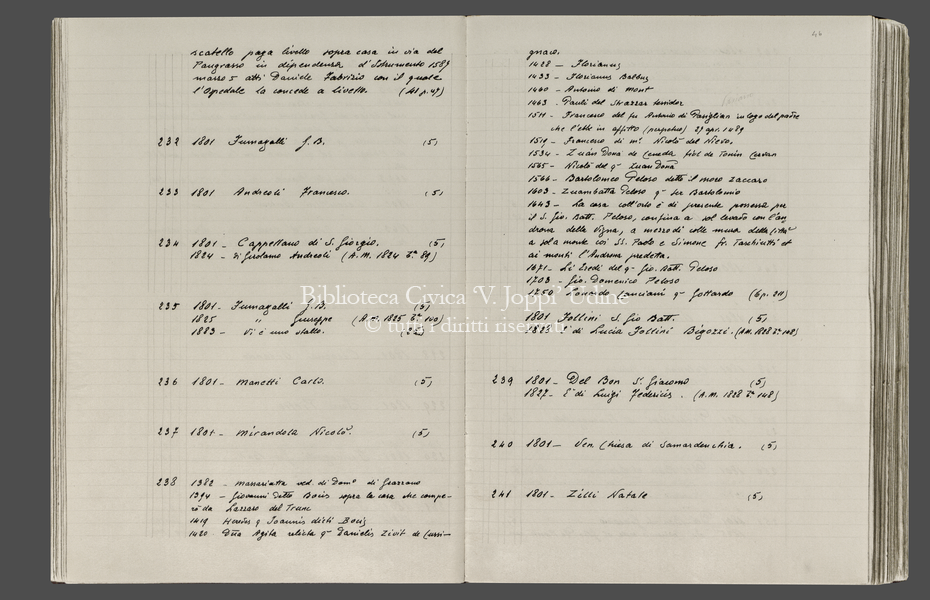 scatello paga livello sopra casa in via del
Pangrasso in dipendenza d'Istrumento 1589
marzo 5 atti Daniele Fabrizio con il quale
l'Ospedale la concede a livello. (61 p. 47)
232 1801 Fumagalli G.B. (5)
233 1801 Andreoli Francesco. (5)
234 1801 - Cappellano di S. Giorgio. (5)
1824 - di Girolamo Andreoli (A.M. 1824 89)
235 1801 - Fumagalli G.B. (5)
1825 " Giuseppe (A.M. 1825 140)
1883 - Vi è uno stallo.
236 1801 - Manetti Carlo. (5)
237 1801 - Mirandola Nicolò. (5)
238 1382 - ved. di Dom.o di Grazzano
1394 - Giovanni detto Bois sopra la casa che compe-
rò da Lazzaro del Trun
1419 Ioannis dicti
1420 Dña Agita relicta q.m Danielis Zivit de Cussi-
46
gnaco.
1428 - Florianus
1433 - Florianus Balbus
1440 - Antonio di Mont
1463 - Pauli del Strazzar
1511 - Francesco del fu Antonio di in logo del padre
che l'ebbe in affitto (perpetuo) 29 apr. 1489
1519 - Francesco di m.o Nicolò del Nievo.
1534 - Zuan Donà de Ceneda fiol de Tonin
1565 - Nicolò del q.m Zuan Donà
1566 - Bartolomeo Peloso detto il moro
1603 - Zuambatta Peloso q.m ser Bartolomio
1643 - La casa coll'orto è di presente possessa per
il S. Gio. Batt. Peloso, confina a sol levado con l'an
drona della Vigna, a mezzodì colle mura della città
a sol a monte coi SS. Paolo e Simone fr. Taschiutti et
ai monti l'Androna predetta.
1671 - Li Eredi del q.m Gio. Batt. Peloso
1703 - Gio. Domenico Peloso
1750 - q.m Gottardo (6 p. 211)
1801 Follini S. Gio Batt. (5)
È di Lucia Follini Bigozzi. (A.M. 1828 148)
239 1801 - Del Bon S. Giacomo (5)
1827 - È di Luigi Federicis. (A.M. 1828 148)
240 1801 - Ven. Chiesa di Samardenchia. (5)
241 1801 - Zilli Natale (5)
Biblioteca Civica 'V. Joppi' Udine
© tutti i diritti riservati